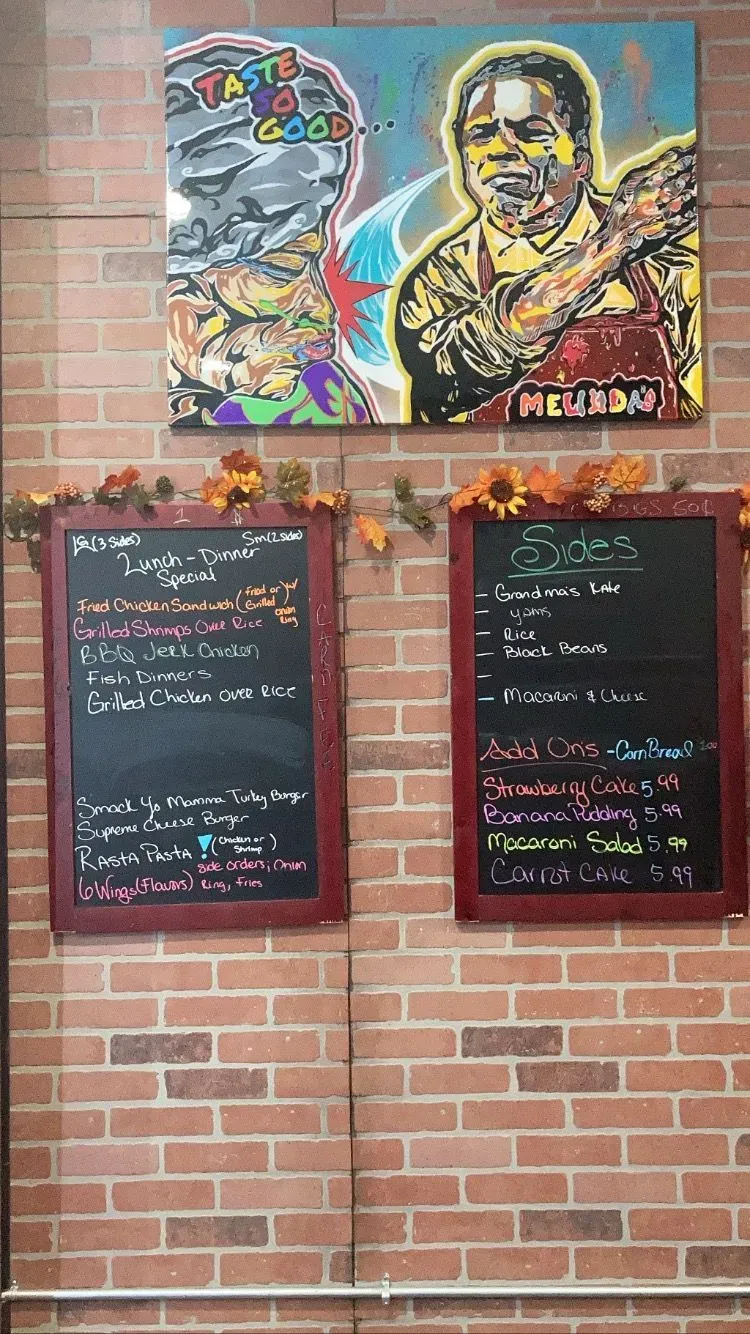 TASTE
SO
GOOD...
MELINDA'S
LG (3 Sides)
Sm (2 Sides)
Lunch - Dinner
Special
Fried Chicken Sandwich (Fried or Grilled) w/ onion Ring
Grilled Shrimps Over Rice
BBQ Jerk Chicken
Fish Dinners
Grilled Chicken Over Rice
Smack Yo Mamma Turkey Burger
Supreme Cheese Burger
Rasta Pasta ! (Chicken or Shrimp)
6 Wings (Flavors) side orders; Onion Ring, Fries
Sides
- Grandma's Kale
- Yams
- Rice
- Black Beans
-
- Macaroni & Cheese
Add On's - Corn Bread 1.00
Strawberry Cake 5.99
Banana Pudding 5.99
Macaroni Salad 5.99
Carrot Cake 5.99